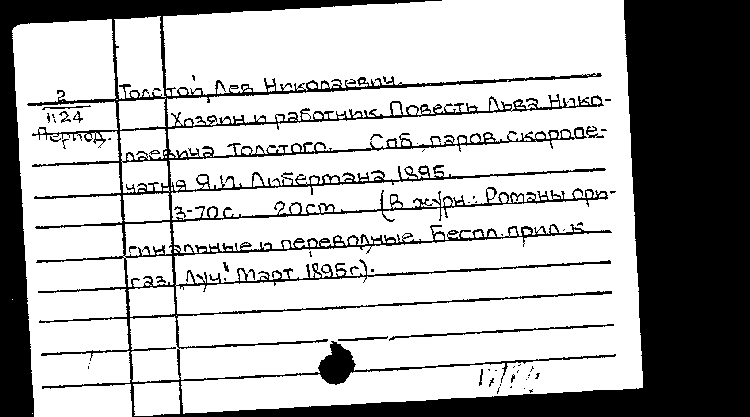 Толстой, Лев Николаевич.
2
1124
Период.
Хозяин и работник. Повесть Льва Нико-
лаевича Толстого. Спб, паров. скоропе-
чатня Я.И. Либермана, 1895.
3-70 с. 20 см. (В журн.: Романы ори-
гинальные и переводные. Беспл. прил. к
газ. „Луч." Март 1895 г.).